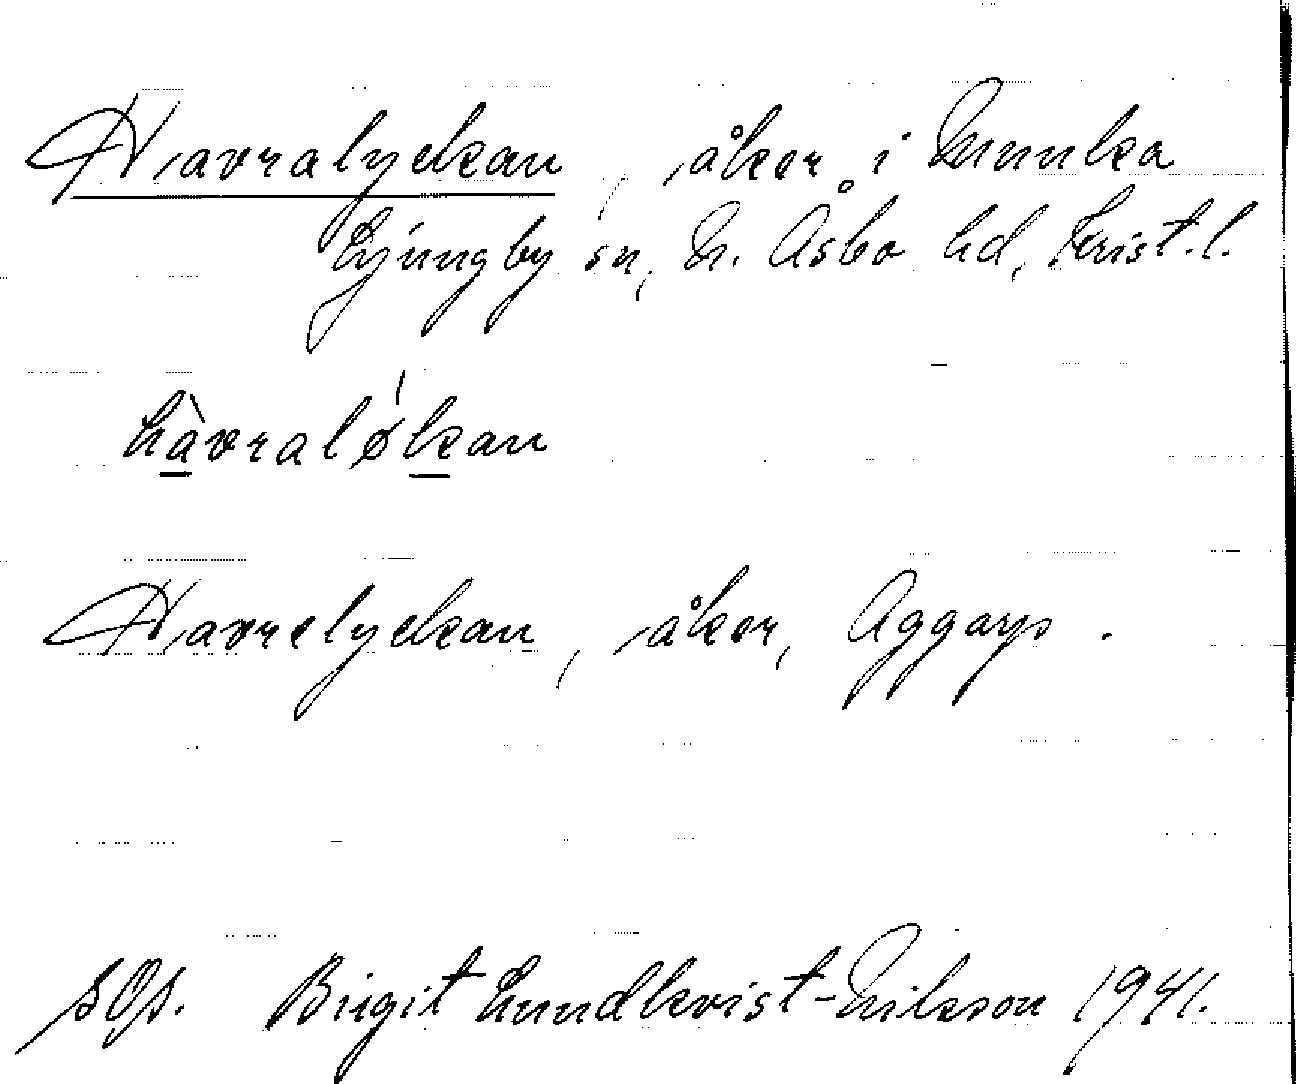 Havralyckan, åker i Munka
Ljungby sn, N. Åsbo hd, Krist. l.
hàvralø̍kan
Havrelyckan, åker, Aggarp.
sOs. Birgit Lundkvist-Nilsson 1941.